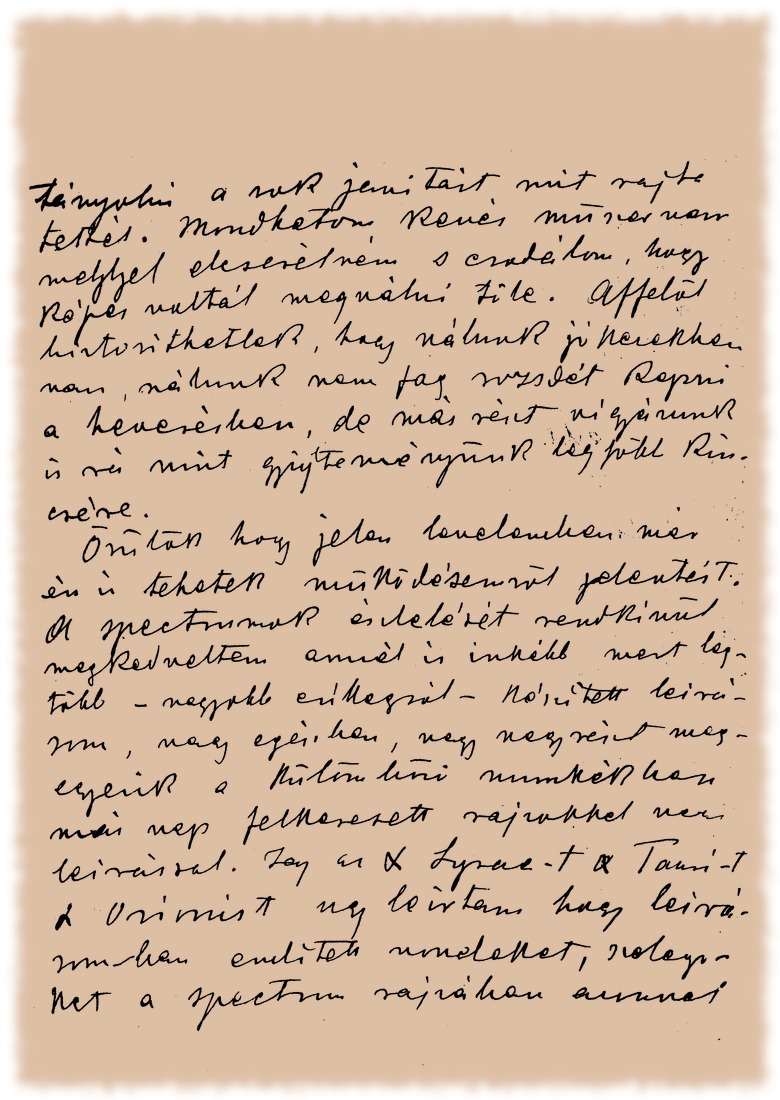 tányolni a sok javitást mit rajta
tettél. Mondhatom kevés műszer van
melylyel elcserélném s csodálom, hogy
képes voltál megválni tőle. Affelől
biztosithatlak, hogy nálunk jó kezekben
van, nálunk nem fog rozsdát kapni
a heverésben, de más részt vigyázunk
is rá mint gyüjteményünk legfőbb kin-
csére.
Örülök hogy jelen levelemben már
én is tehetek működésemről jelentést.
A spectrumok észlelését rendkivül
megkedveltem annál is inkább mert leg-
több – nagyobb csillagról – készített leirá-
som, vagy egészben, vagy nagyrészt meg-
egyezik a különböző munkákban
más nap felkeresett rajzokkal vagy
leirással. Igy az α Lyrae-t α Tauri-t
α Orionist ugy leirtam hogy leirá-
somban emlitett vonalakat, szalago-
kat a spectrum rajzában azonnal